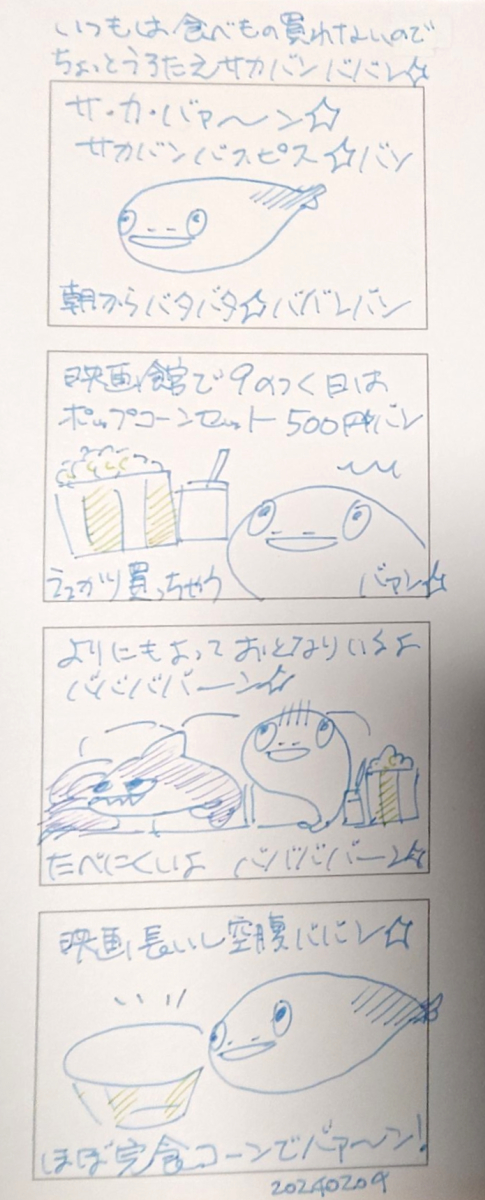 いつもは食べもの買れないので
ちょっとうろたえサカバンババン☆
サ・カ・バァ〜ン☆
サカバンバスピス☆バン
朝からバタバタ☆ババンバン
映画館で9のつく日は
ポップコーンセット500円バン
うっかり買っちゃう
バァン☆
よりにもよっておとなりいるよ
バババババーン☆
たべにくいよ バババババーン☆
映画長いし空腹ババン☆
ほぼ完食コーンでバァ〜ン!
20240209